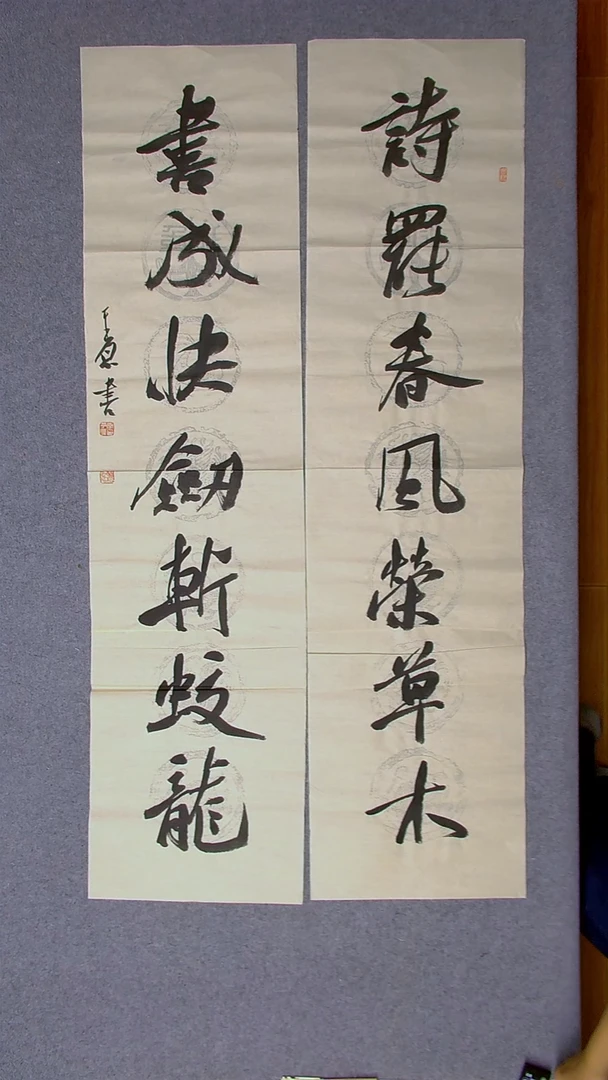 詩罷春風榮草木
書成快劍斬蛟龍
書